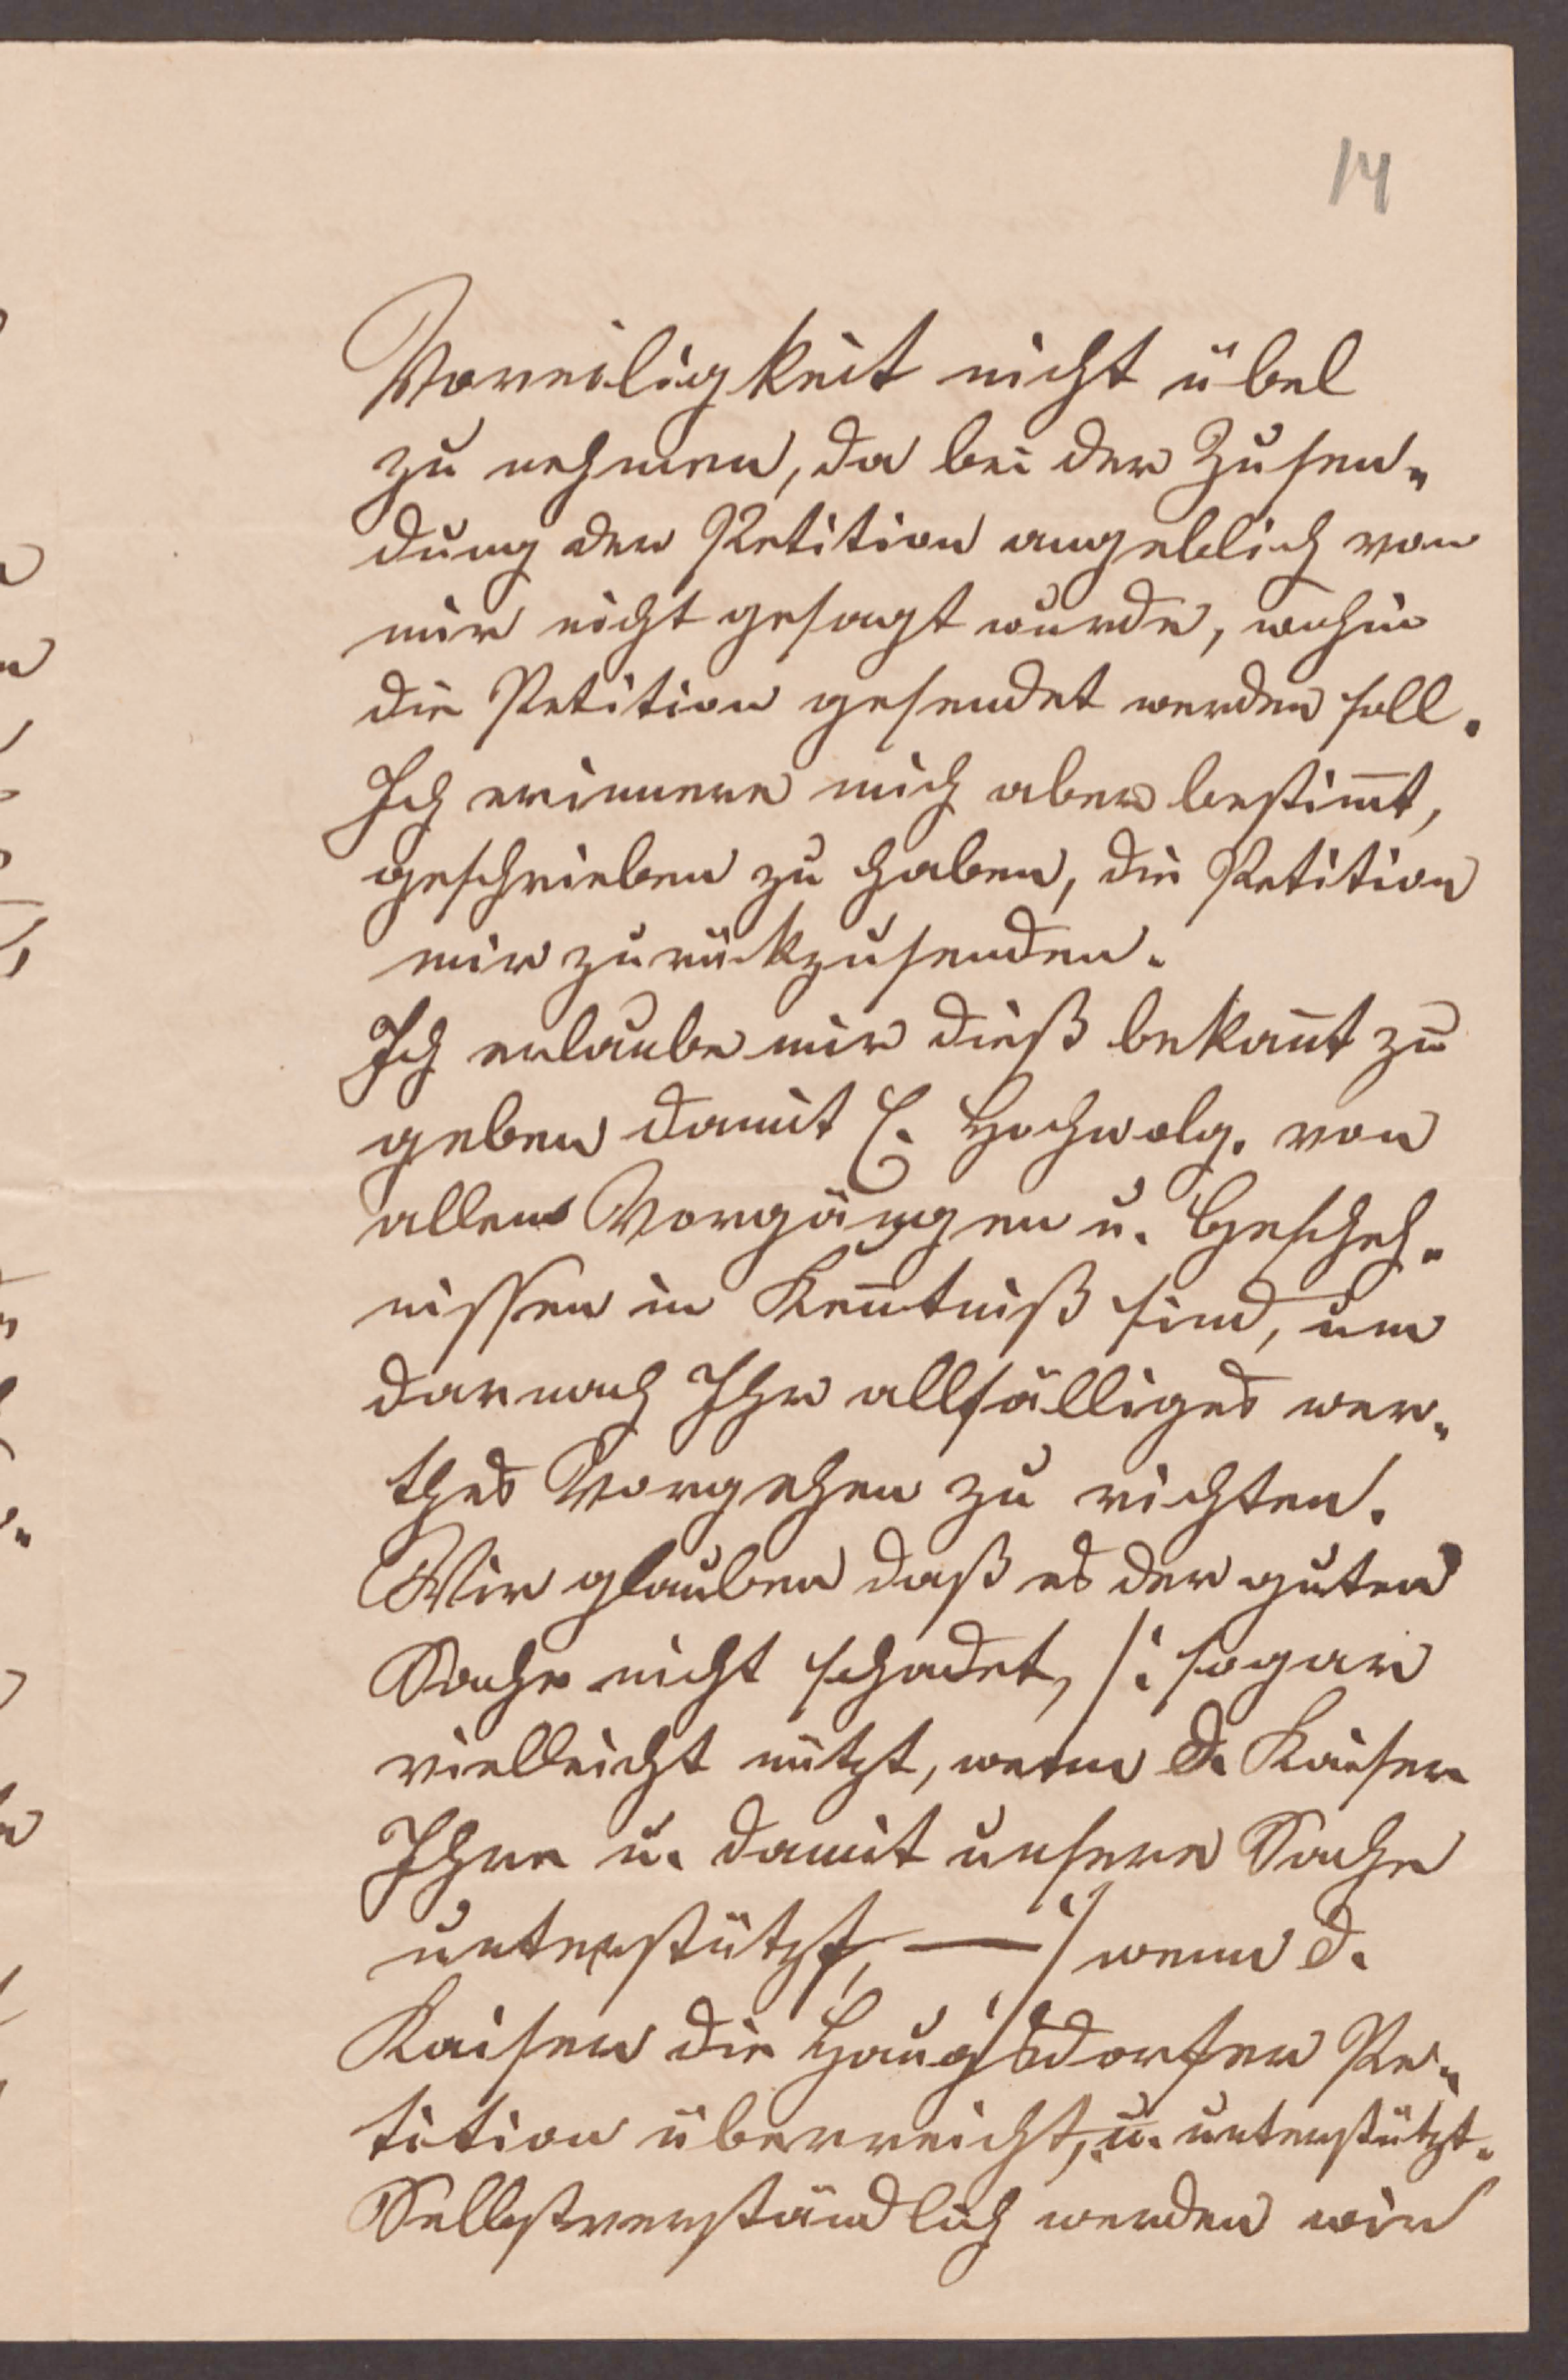 14
Voreiligkeit nicht übel
zu nehmen, da bei der Zusen-
dung der Petition angeblich von
mir nicht gesagt wurde, wohin
die Petition gesendet werden soll.
Ich erinnere mich aber bestim̅t,
geschrieben zu haben, die Petition
mir zurückzusenden.
Ich erlaube mir dieß bekan̅t zu
geben damit E. Hochwolg. von
allen Vorgängen u. Gescheh-
nissen in Ken̅tniß sind, um
darnach Ihr allfälliges wer-
thes Vorgehen zu richten.
Wir glauben daß es der guten
Sache nicht schadet, /: sogar
vielleicht nützt, wenn d. Kaiser
Ihre u. damit unsere Sache
unterstützt, — :/ wenn d.
Kaiser die Haugsdorfer Pe-
tition überreicht, u. unterstützt.
Selbstverständlich werden wir